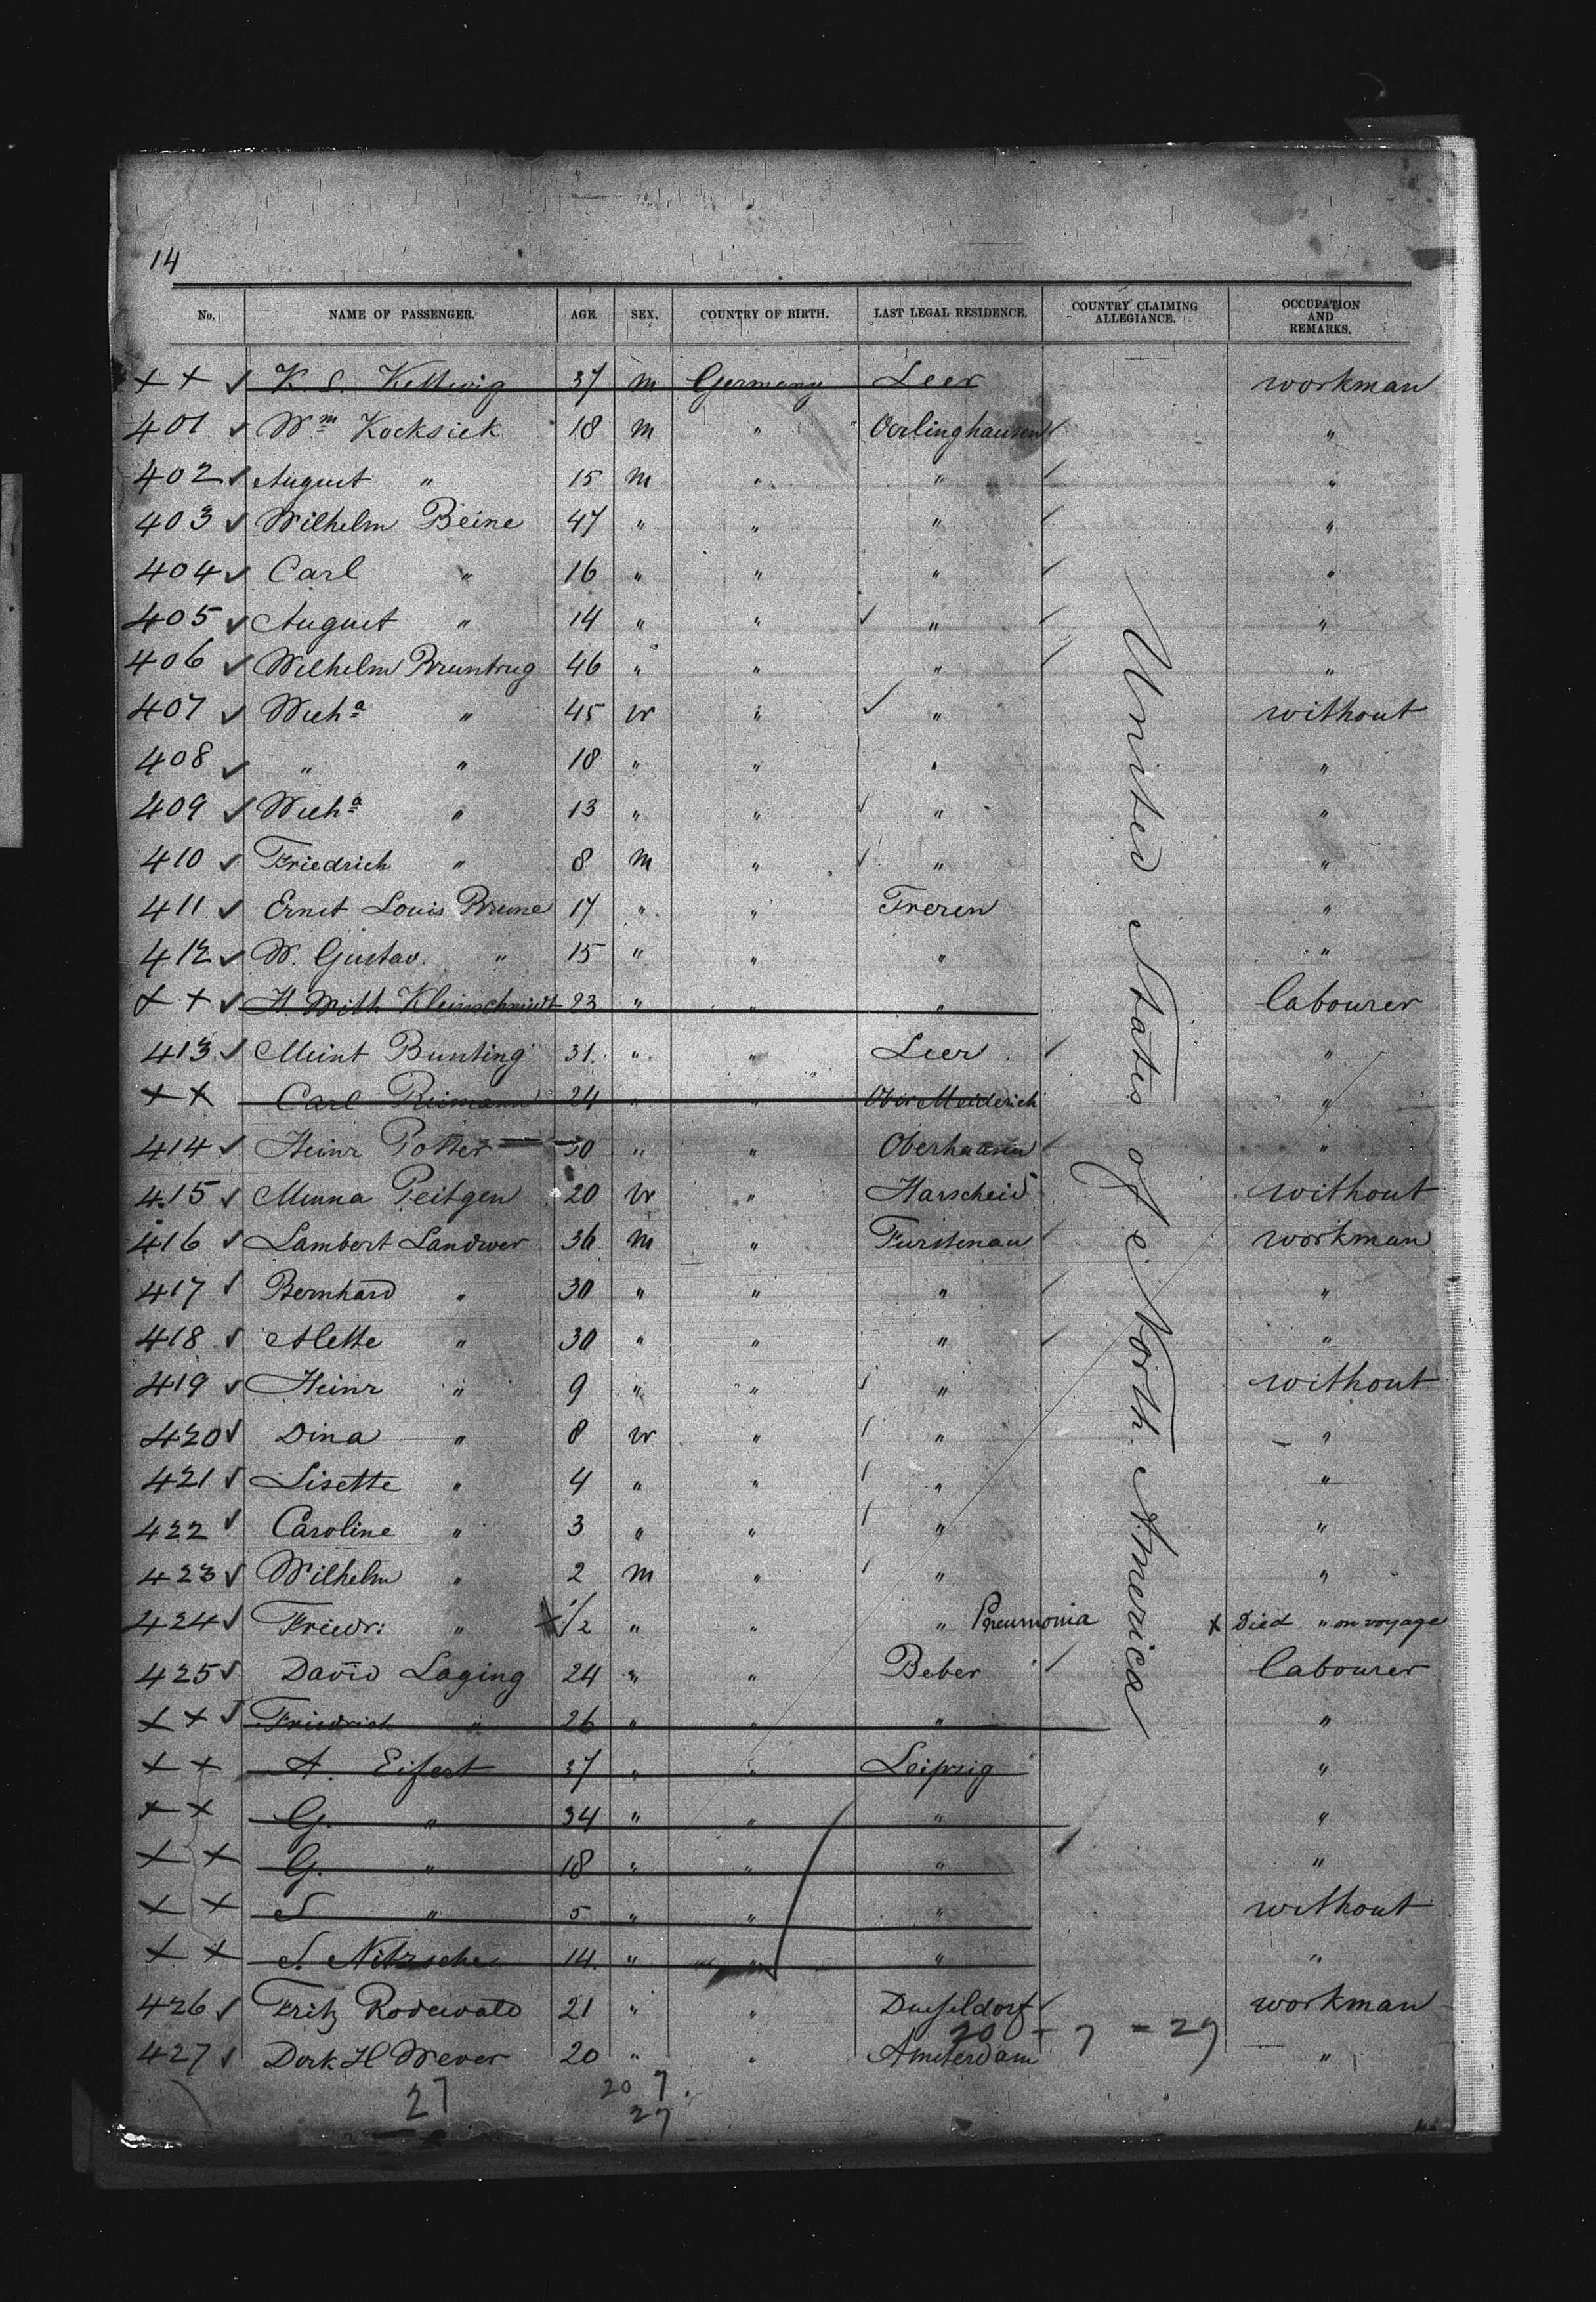 14
No. NAME OF PASSENGER. AGE. SEX. COUNTRY OF BIRTH. LAST LEGAL RESIDENCE. COUNTRY CLAIMING ALLEGIANCE. OCCUPATION AND REMARKS.
+ + ✓ K. S. Kettwig 37 m Germany Leer workman
401 ✓ Wm Kocksiek 18 m " " Oerlinghausen ✓ "
402 ✓ August " 15 m " " ✓ "
403 ✓ Wilhelm Beine 47 " " " ✓ "
404 ✓ Carl " 16 " " " ✓ "
405 ✓ August " 14 " " ✓ " ✓ "
406 ✓ Wilhelm Bruntrug 46 " " " ✓ "
407 ✓ Wilha " 45 w " ✓ " without
408 ✓ " " 18 " " " "
409 ✓ Wilha " 13 " " ✓ " "
410 ✓ Friedrich " 8 m " ✓ " "
411 ✓ Ernst Louis Brune 17 " " Freren "
412 ✓ W. Gustav. " 15 " " " "
+ + ✓ H. Wilh. Kleinschmidt 23 " " " labourer
413 ✓ Meint Bunting 31. " " Leer ✓ "
+ + Carl Reimann 24 " " Ober Meiderich "
414 ✓ Heinr Potter 30 " " Oberhausen ✓ "
415 ✓ Minna Peitgen 20 w " Harscheid without
416 ✓ Lambert Landwer 36 m " Furstenau ✓ workman
417 ✓ Bernhard " 30 " " " ✓ "
418 ✓ Alette " 30 " " " ✓ "
419 ✓ Heinr " 9 " " ✓ " without
420 ✓ Dina " 8 w " ✓ " "
421 ✓ Lisette " 4 " " ✓ " "
422 ✓ Caroline " 3 " " ✓ " "
423 ✓ Wilhelm " 2 m " ✓ " "
424 ✓ Friedr: " x 1/2 " " " Pneumonia x Died " on voyage
425 ✓ David Laging 24 " " Beber ✓ labourer
+ + ✓ Friedrich " 26 " " " "
+ + A. Eifert 37 " " Leipzig "
+ + G. " 34 " " " "
+ + G. " 18 " " " "
+ + S " 5 " " " without
+ + S. Nitzsche 14. " " " "
426 ✓ Fritz Rodewald 21 " " Dusseldorf ✓ workman
20 + 7 = 27
427 ✓ Dirk H Wever 20 " " Amsterdam "
27 20 7.
27
United States of North America